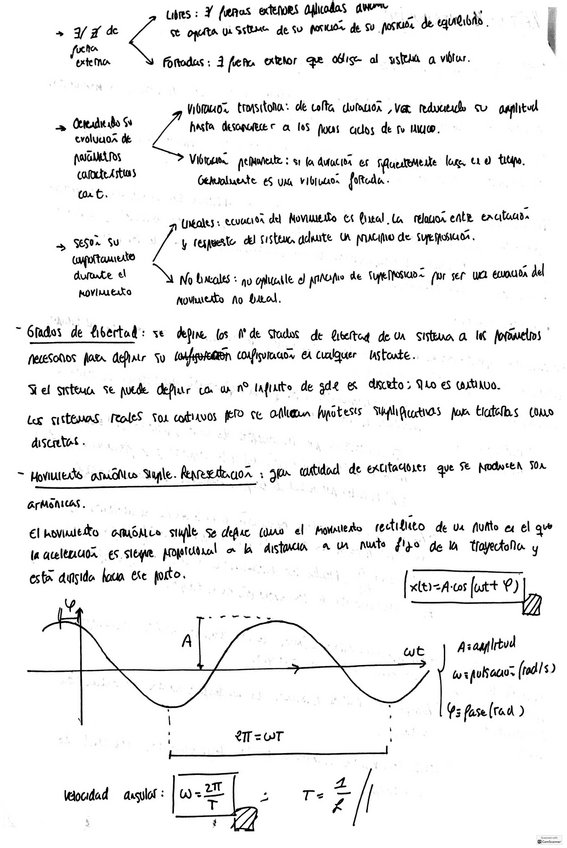 → ∃/∄ de fuerza externa
LIBRES: ∄ fuerzas exteriores aplicadas
se aparta un sistema de su posición de su posición de equilibrio.
Forzadas: ∃ fuerza exterior que obliga al sistema a vibrar.
→ Dependiendo su evolución de parámetros característicos con t.
Vibración transitoria: de corta duración, van reduciendo su amplitud
hasta desaparecer a los pocos ciclos de su inicio.
Vibración permanente: si la duración es suficientemente larga en el tiempo.
Generalmente es una vibración forzada.
→ Según su comportamiento durante el movimiento
Lineales: ecuación del movimiento es lineal. La relación entre excitación
y respuesta del sistema admite un principio de superposición.
No lineales: no aplicable el principio de superposición por ser una ecuación del
movimiento no lineal.
- Grados de libertad: se define los nº de grados de libertad de un sistema a los parámetros
necesarios para definir su configuración en cualquier instante.
Si el sistema se puede definir con un nº infinito de gdl es discreto; si no es continuo.
Los sistemas reales son continuos pero se aplican hipótesis simplificativas para tratarlas como
discretas.
- Movimiento armónico simple. Representación: gran cantidad de excitaciones que se producen son
armónicas.
El movimiento armónico simple se define como el movimiento rectilíneo de un punto en el que
la aceleración es siempre proporcional a la distancia a un punto fijo de la trayectoria y
está dirigida hacia ese punto.
x(t)=A·cos(ωt+φ)
φ
A
ωt
A=amplitud
ω=pulsación (rad/s)
φ=fase (rad)
2π=ωT
Velocidad angular: ω=2π/T
T=1/f